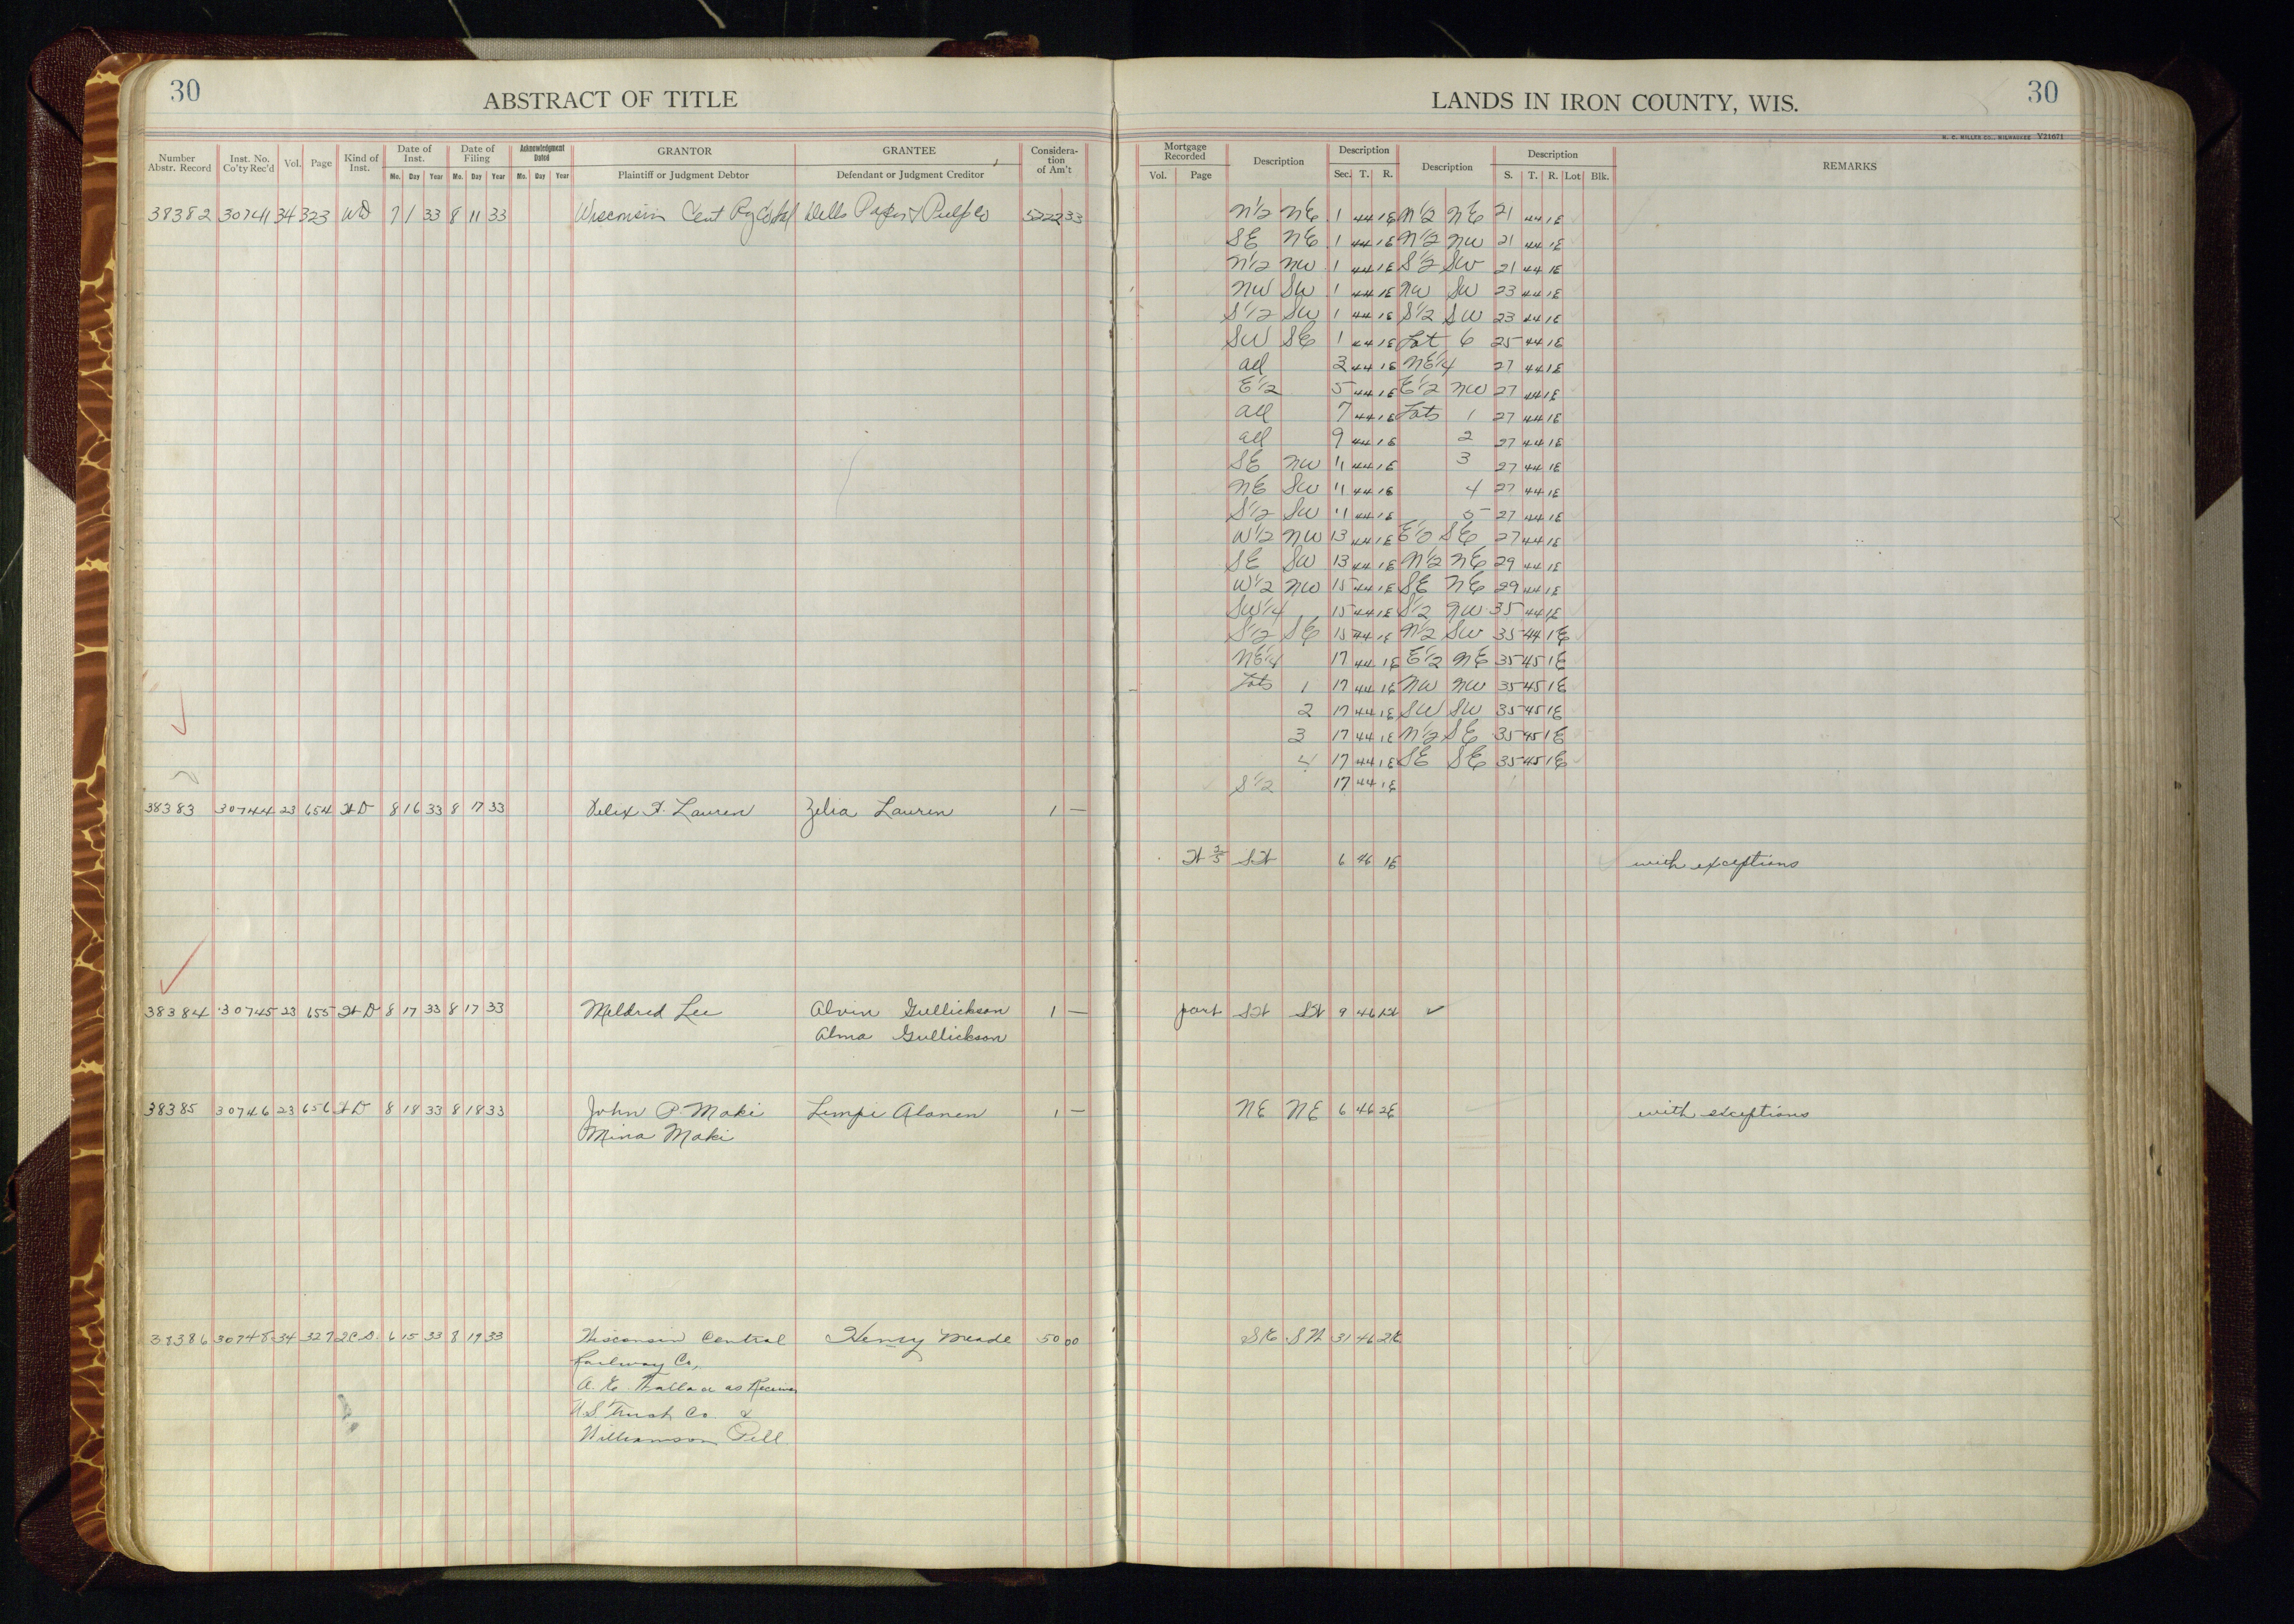 30
ABSTRACT OF TITLE
LANDS IN IRON COUNTY, WIS.
30
H. C. MILLER CO., MILWAUKEE V21671
Number Abstr. Record Inst. No. Co'ty Rec'd Vol. Page Kind of Inst. Date of Inst. Date of Filing Acknowledgment Dated GRANTOR GRANTEE Consideration of Am't
Mo. Day Year Mo. Day Year Mo. Day Year Plaintiff or Judgment Debtor Defendant or Judgment Creditor
Mortgage Recorded Description Description Description Description REMARKS
Vol. Page Sec. T. R. S. T. R. Lot Blk.
38382 30741 34 323 WD 7 1 33 8 11 33 Wisconsin Cent Ry Co Dells Paper & Pulp Co 5222 33 N1/2 NE 1 44 1E N1/2 NE 21 44 1E
SE NE 1 44 1E N1/2 NW 21 44 1E
N1/2 NW 1 44 1E S1/2 SW 21 44 1E
NW SW 1 44 1E NW SW 23 44 1E
S1/2 SW 1 44 1E S1/2 SW 23 44 1E
SW SE 1 44 1E Lot 6 25 44 1E
all 3 44 1E NE1/4 27 44 1E
E1/2 5 44 1E E1/2 NW 27 44 1E
all 7 44 1E Lots 1 27 44 1E
all 9 44 1E 2 27 44 1E
SE NW 11 44 1E 3 27 44 1E
NE SW 11 44 1E 4 27 44 1E
S1/2 SW 11 44 1E 5 27 44 1E
W1/2 NW 13 44 1E E1/2 SE 27 44 1E
SE SW 13 44 1E N1/2 NE 29 44 1E
W1/2 NW 15 44 1E SE NE 29 44 1E
SW1/4 15 44 1E S1/2 NW 35 44 1E
S1/2 SE 15 44 1E N1/2 SW 35 44 1E
NE1/4 17 44 1E E1/2 NE 35 45 1E
Lots 1 17 44 1E NW NW 35 45 1E
2 17 44 1E SW SW 35 45 1E
3 17 44 1E N1/2 SE 35 45 1E
4 17 44 1E SE SE 35 45 1E
S1/2 17 44 1E
38383 30744 23 654 WD 8 16 33 8 17 33 Felix W. Lauren Zelia Lauren 1 —
W 3/5 SW 6 46 1E with exceptions
38384 30745 23 655 WD 8 17 33 8 17 33 Mildred Lee Alvin Gullickson 1 — part SW SW 9 46 1W ✓
Alma Gullickson
38385 30746 23 656 WD 8 18 33 8 18 33 John P. Maki Lempi Alanen 1 — NE NE 6 46 2E with exceptions
Mina Maki
38386 30748 34 327 2CD 6 15 33 8 19 33 Wisconsin Central Henry Meade 50 00 SE SW 31 46 2E
Railway Co.,
A. E. Wallace as Receiver
U.S. Trust Co. &
Williamson Pell